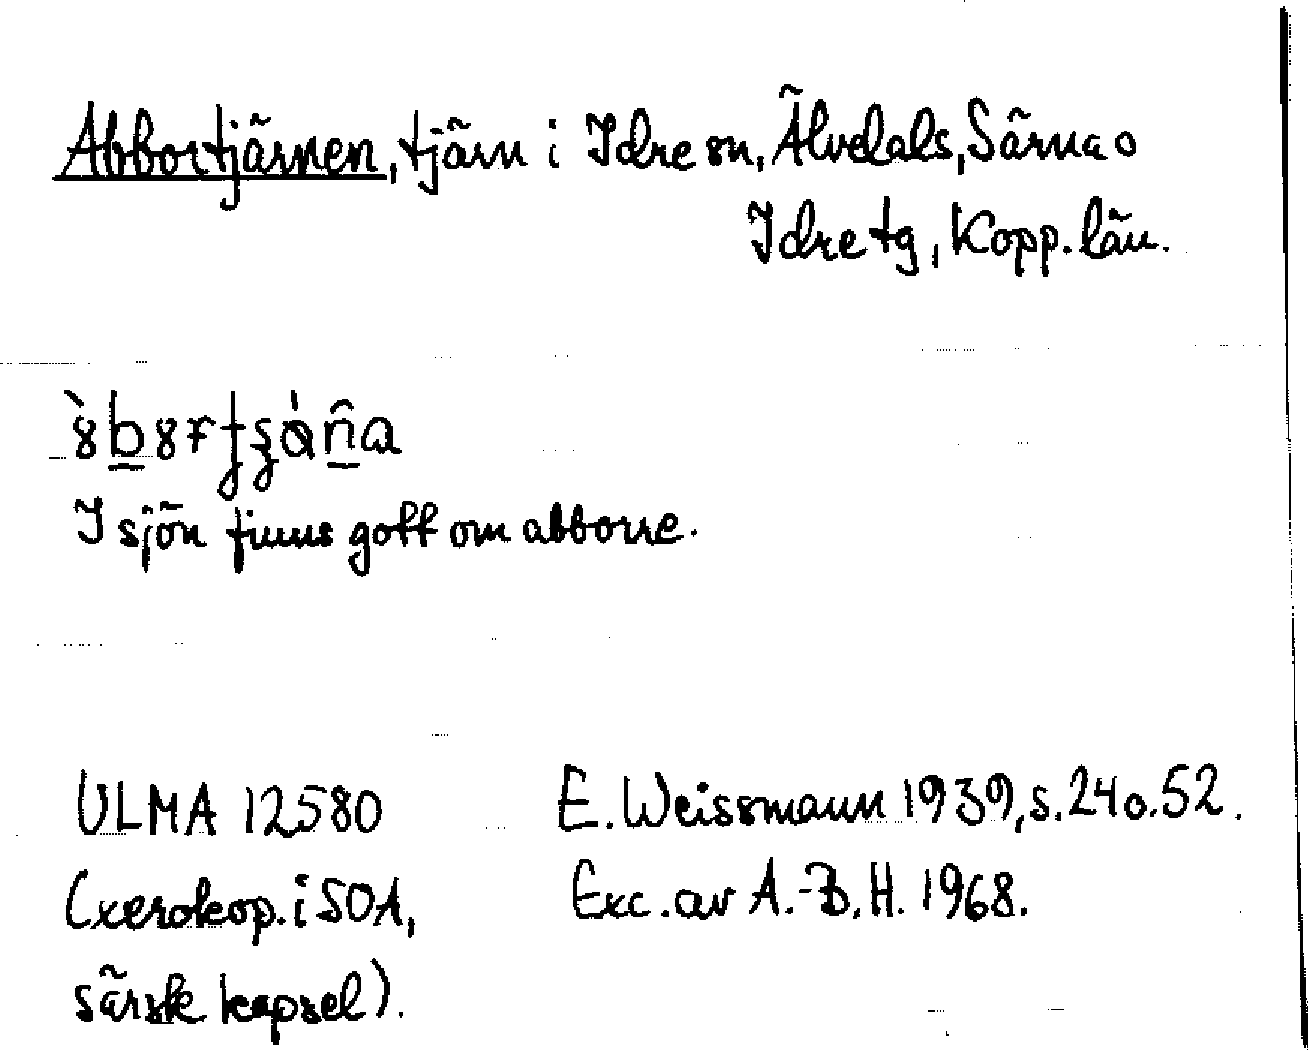 Abbortjärnen, tjärn i Idre sn, Älvdals, Särna o
Idre tg, Kopp. län.
I sjön finns gott om abborre.
ULMA 12580
E. Weissmann 1939, s. 24 o. 52.
(xerokop. i SOA,
Exc. av A.-B. H. 1968.
särsk kapsel).